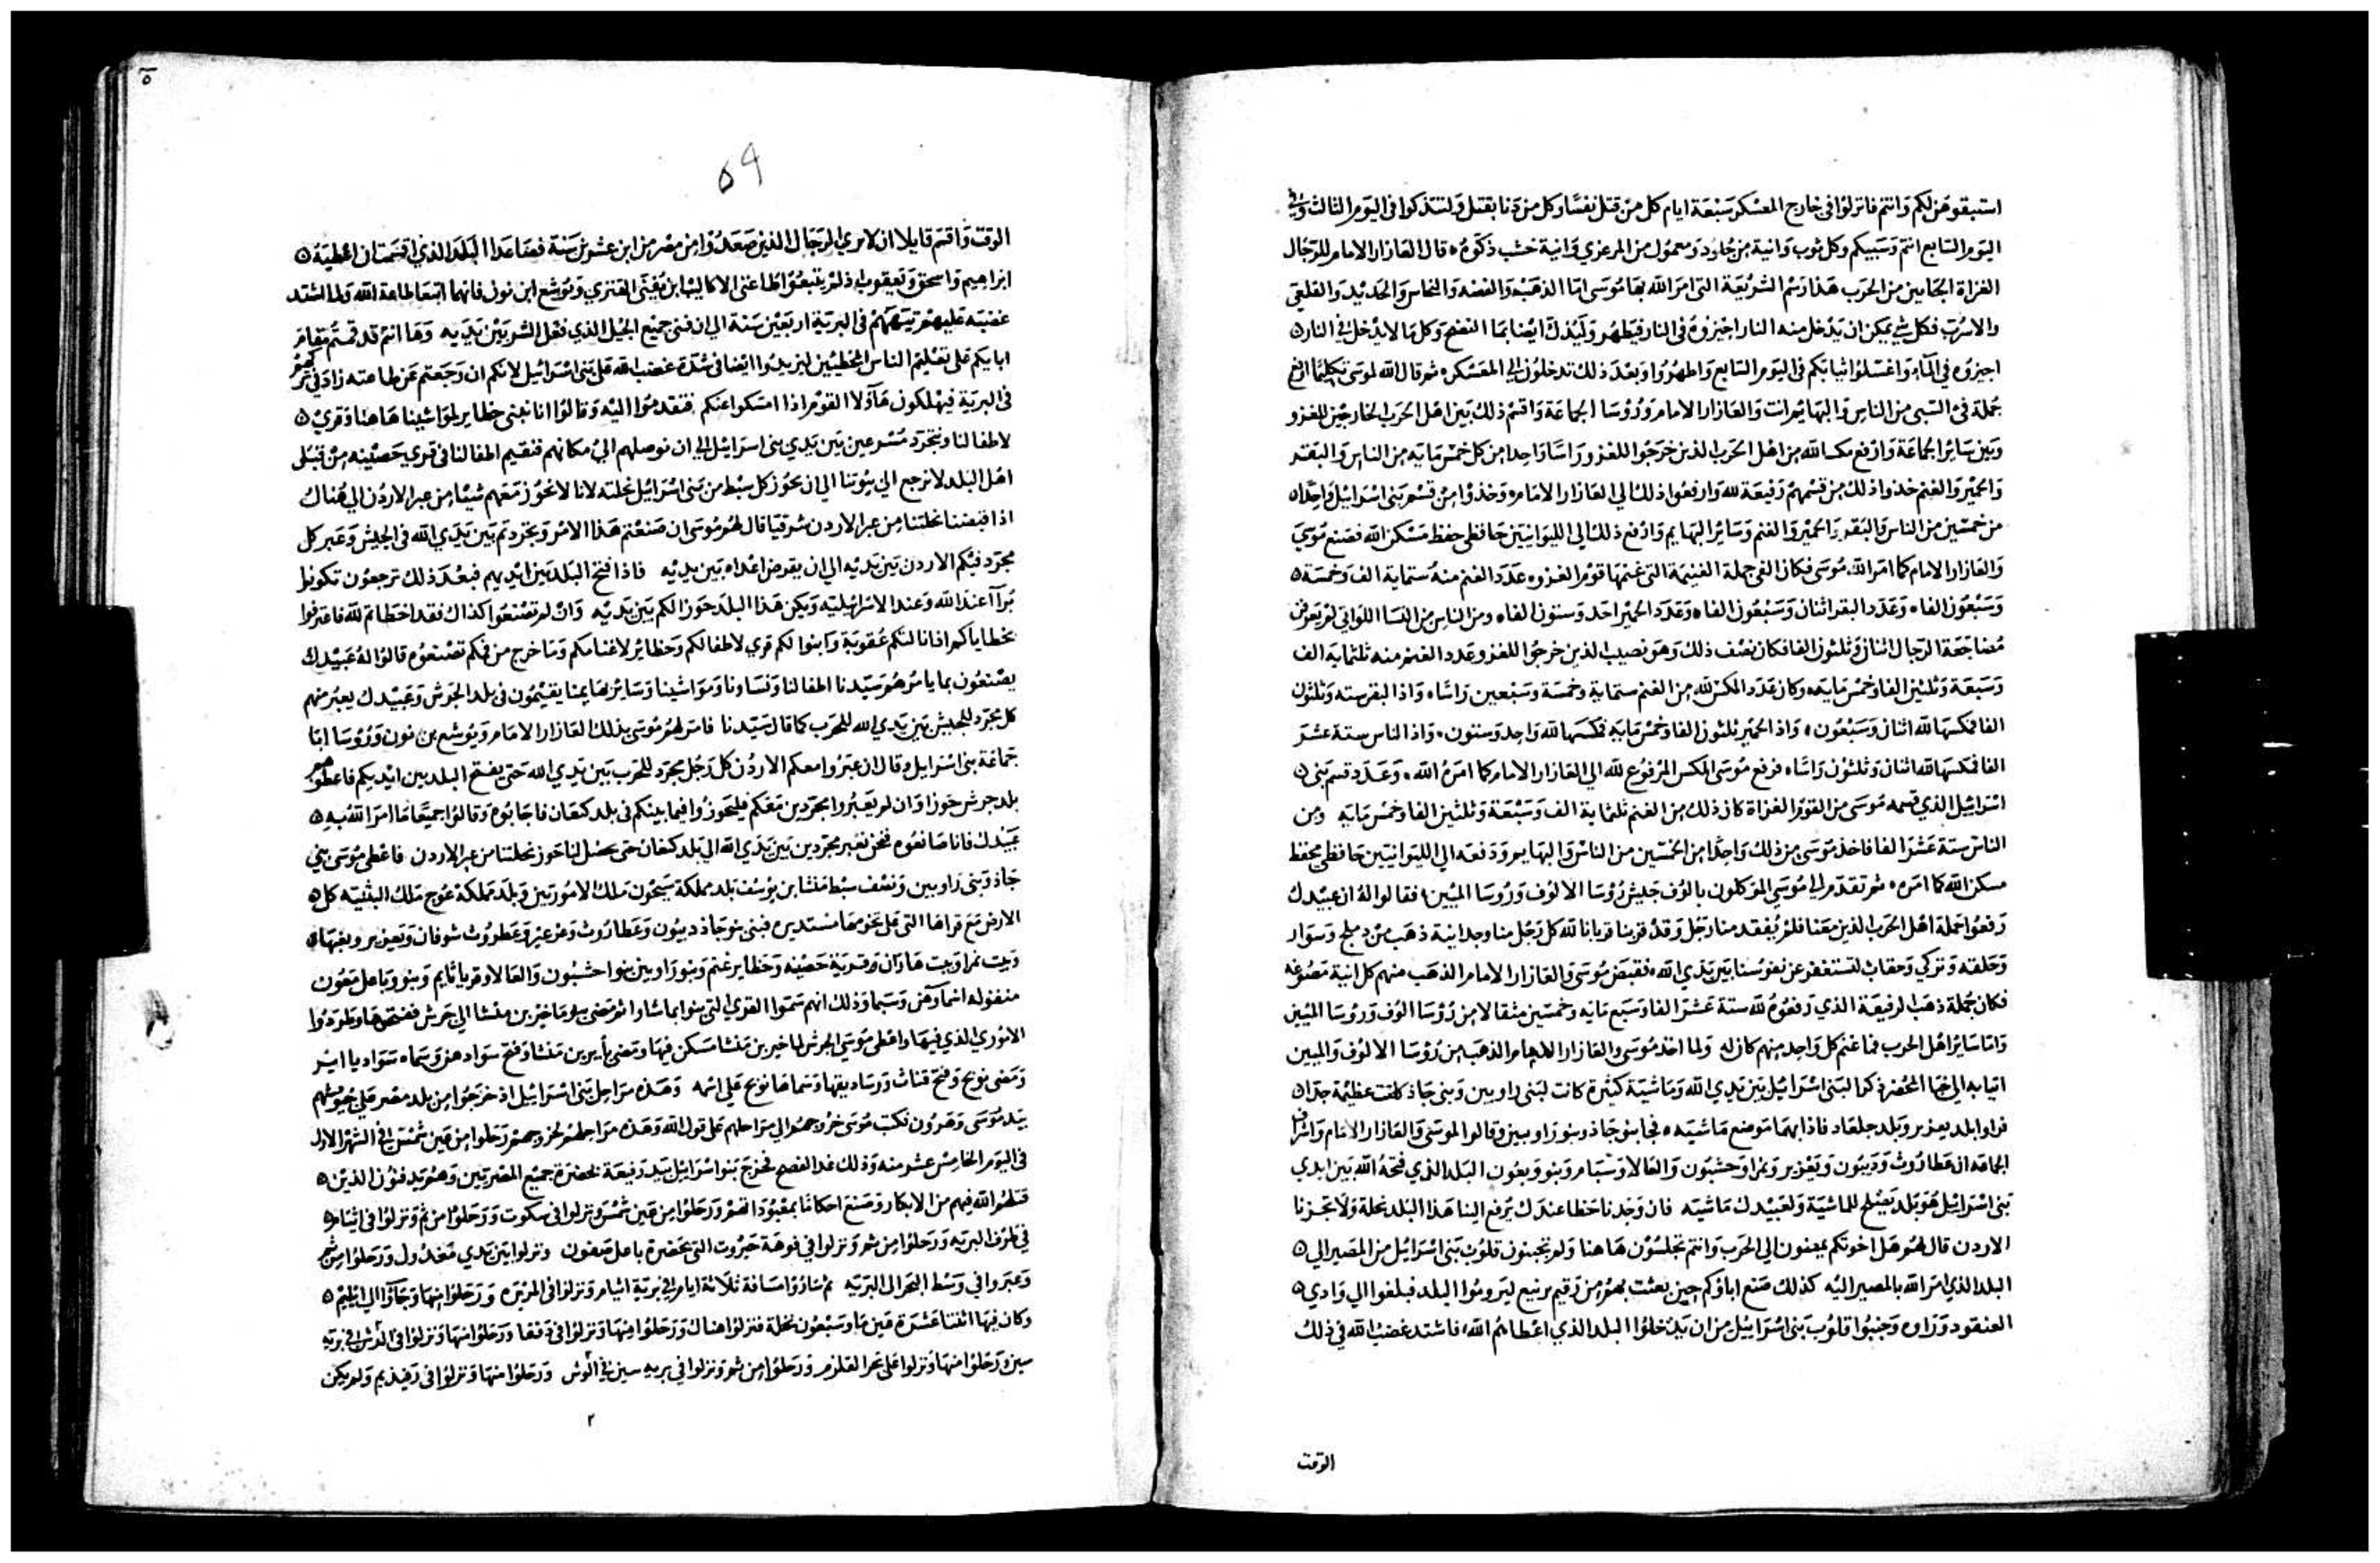 استبقوهن لكم وانتم فانزلوا في خارج المعسكر سبعة ايام كل من قتل نفسا وكل من دنا بقتيل ولتتذكوا في اليوم الثالث وفي
اليوم السابع انتم وسبيكم وكل ثوب وانية من جلود ومعمول من المرعزي وانية خشب ذكوه قال العازار الامام للرجال
الغزاة الجايين من الحرب هذا رسم الشريعة التي امر الله بها موسى اما الذهب والفضه والنحاس والحديد والقلعي
والاسرب فكل شي يمكن ان يدخل منه النار اجيزوه في النار فيطهر وليذك ايضا بما النضح وكل ما لا يدخل في النار
اجيزوه في الماء واغسلوا ثيابكم في اليوم السابع واطهروا وبعد ذلك تدخلون الي المعسكر ثم قال الله لموسى تكليما ارفع
جملة فئ السبي من الناس والبهائم انت والعازار الامام ورؤسا الجماعة واقسم ذلك بين اهل الحرب الخارجين للغزو
وبين سائر الجماعة وارفع مكسا لله من اهل الحرب الذين خرجوا للغزو راسا واحدا من كل خمس مايه من الناس والبقر
والحمير والغنم خذوا ذلك من قسمهم رفيعة لله وارفعوا ذلك الي العازار الامام وخذوا من قسم بني اسرائيل واحدا
من خمسين من الناس والبقر والحمير والغنم وسائر البهايم وادفع ذلك الي الليوانيين حافظي حفظ مسكن الله فصنع موسى
والعازار الامام كما امر الله موسى فكان الفي جملة الغنيمة التي غنمها قوم الغزو عدد الغنم منه ستماية الف وخمسة
وسبعون الفا وعدد البقر اثنان وسبعون الفا وعدد الحمير احد وستون الفا ومن الناس من النسا اللواتي لم يعرفن
مضاجعة الرجال اثنان وثلثون الفا فكان نصف ذلك وهو نصيب الذين خرجوا للغزو عدد الغنم منه ثلثماية الف
وسبعة وثلثين الفا وخمس مايه وكان عدد المكس لله من الغنم ستماية وخمسة وسبعين راسا واذا البقر سته وثلثون
الفا مكسها لله اثنان وسبعون واذا الحمير ثلثون الفا وخمس مايه مكسها لله واحد وستون واذا الناس ستة عشر
الفا مكسها لله اثنان وثلثون راسا فرفع موسى المكس المرفوع لله الي العازار الامام كما امره الله وعدد قسم بني
اسرائيل الذي قسمه موسى من القوم الغزاة كان ذلك من الغنم ثلثماية الف وسبعة وثلثين الفا وخمس مايه ومن
الناس ستة عشر الفا فاخذ موسى من ذلك واحدا من الخمسين من الناس والبهايم ودفعه الي الليوانيين حافظي محفظ
مسكن الله كما امره ثم تقدم الي موسى الموكلون بالوف جيش رؤسا الالوف ورؤسا الميين فقالوا له ان عبيدك
رفعوا جملة اهل الحرب الذين معنا فلم يفقد منا رجل وقد قربنا قربانا لله كل رجل منا وجد انية ذهب من دملج وسوار
وحلقه وتركي وحقاب لتستغفر عن نفوسنا بين يدي الله فقبض موسى والعازار الامام الذهب منهم كل انية مصوغه
فكان جملة ذهب الرفيعة الذي رفعوه لله ستة عشر الفا وسبع مايه وخمسين مثقالا من رؤسا الوف ورؤسا الميين
واما سائر اهل الحرب فما غنم كل واحد منهم كان له ولما اخذ موسى والعازار الامام الذهب من رؤسا الالوف والميين
اتيا به الي خبا المحضر ذكرا لبني اسرائيل بين يدي الله وماشية كثيرة كانت لبني راوبين وبني جاذ كانت عظيمة جدا
فراوا بلد يعزير وبلد جلعاد فاذا بهما موضع ماشيه فجا بنو جاذ وبنو راوبين وقالوا لموسى والعازار الامام واشراف
الجماعه ان عطاروث وديبون ويعزير ونمرا وحشبون والعالا وشبام ونبو وبعون البلد الذي فتحه الله بين ايدي
بني اسرائيل هو بلد يصلح للماشية ولعبيدك ماشيه فان وجدنا حظا عندك يرفع الينا هذا البلد نحلة ولا تجزنا
الاردن قال لهم هل اخوتكم يمضون الي الحرب وانتم تجلسون هاهنا ولم تجبنون قلوب بني اسرائيل من المصير الي
البلد الذي امر الله بالمصير اليه كذلك صنع اباؤكم حين بعثت بهم من رقيم برنيع ليروموا البلد فبلغوا الي وادي
العنقود وراوه وجنبوا قلوب بني اسرائيل من ان يدخلوا البلد الذي اعطاهم الله فاشتد غضب الله في ذلك
الوقت
٥
59
الوقت واقسم قايلا ان لا يري الرجال الذين صعدوا من مصر من ابن عشرين سنة فصاعدا البلد الذي اقسمت ان اعطيه
ابراهيم واسحق ويعقوب اذ لم يتبعوا طاعتي الا كاليب ابن يفنى القنزي ويوشع ابن نون فانهما اتبعا طاعة الله ولما اشتد
غضبه عليهم تيههم في البرية اربعين سنة الي ان فنى جميع الجيل الذي فعل الشر بين يديه وها انتم قد قمتم مقام
ابايكم على تعليم الناس الخطيين ليزيدوا ايضا في شدة غضب الله على بني اسرائيل لانكم ان رجعتم عن طاعته زاد في تركهم
في البرية فيهلكون هآولا القوم اذا امسكوا عنكم فتقدموا اليه وقالوا انا نبني حظاير لمواشينا هاهنا وقري
لاطفالنا ونتجرد مسرعين بين يدي بني اسرائيل الي ان نوصلهم الي مكانهم فنقيم اطفالنا في قري حصينه من قبلى
اهل البلد لا نرجع الي بيوتنا الي ان يحوز كل سبط من بني اسرائيل نحلته لانا لا نحوز معهم شيئا من عبر الاردن الي هناك
اذا قبضنا نحلتنا من عبر الاردن شرقيا قال لهم موسى ان صنعتم هذا الامر وتجردتم بين يدي الله في الجيش وعبر كل
مجرد فيكم الاردن بين يديه الي ان يقرض اعداه بين يديه فاذا فتح البلد بين ايديهم فبعد ذلك ترجعون تكونوا
برآء عند الله وعند الاسرائيليه ويكن هذا البلد حوزا لكم بين يديه وان لم تصنعوا كذاك فقد اخطاتم لله فاعترفوا
بخطاياكم
يصنعون بما يامرهم سيدنا اطفالنا ونساونا ومواشينا وسائر بهايمنا يقيمون في بلد الجرش وعبيدك يعبر منهم
كل مجرد للجيش بين يدي الله للحرب كما قال سيدنا فامر لهم موسى بذلك العازار الامام ويوشع بن نون ورؤسا ابا
جماعة بني اسرايل وقال ان عبروا معكم الاردن كل رجل مجرد للحرب بين يدي الله حتى يفتح البلد بين ايديكم فاعطوهم
بلد جرش حوزا وان لم يعبروا مجردين معكم فليحوزوا فيما بينكم في بلد كنعان فاجابوه وقالوا جميعا ما امر الله به
عبيدك فانا صانعوه فنحن نعبر مجردين بين يدي الله الي بلد كنعان حتى يحصل لنا حوز نحلتنا من عبر الاردن فاعطى موسى بني
جاذ وبني راوبين ونصف سبط منشا بن يوسف بلد مملكة سيحون ملك الاموريين وبلد مملكة عوج ملك البثنيه كل
الارض مع قراها التي على تخومها مستديره فبنى بنو جاذ ديبون وعطاروث وعرعير وعطروث شوفان ويعزير ويغبها
وبيت نمرا وبيت هاران وقرية حصينه وحظاير غنم وبنو راوبين بنوا حشبون والعالا وقرياثايم ونبو وباعل معون
الاموري الذي فيها واعطى موسى الجرش لماخير بن منشا فسكن فيها ومضى يأير بن منشا وفتح سوادهم وسماه سواد يا اير
ومضى نوبح وفتح قناث ورساديقها وسماها نوبح على اسمه وهذه مراحل بني اسرائيل اذ خرجوا من بلد مصر على جيوشهم
بيد موسى وهرون فكتب موسى خروجهم الي مراحلهم على قول الله وهذه مراحلهم لخروجهم رحلوا من عين شمس في الشهر الاول
في اليوم الخامس عشر منه وذلك غد الفصح فخرج بنو اسرائيل بيد رفيعة بحضرة جميع المصريين وهم يدفنون الذين
قتلهم الله فيهم من الابكار وصنع احكاما بمعبوداتهم ورحلوا من عين شمس ونزلوا في سكوت ورحلوا من ثم ونزلوا في ايثام
في طرف البريه ورحلوا من ثم ونزلوا في فوهة حيروت التي بحضرة باعل صفون ونزلوا بين يدي مغدول ورحلوا من ثم
وعبروا في وسط البحر الى البريه ثم ساروا مسافة ثلاثة ايام في برية ايثام ونزلوا في المريره ورحلوا منها وجآؤا الي ايليم
وكان فيها اثنتا عشرة عين ما وسبعون نخلة فنزلوا هناك ورحلوا منها ونزلوا في دفقا ورحلوا منها ونزلوا في الوش في بريه
سين ورحلوا منها ونزلوا على بحر القلزم ورحلوا من ثم ونزلوا في بريه سين في الوش ورحلوا منها ونزلوا في رفيذيم ولم يكن
٢